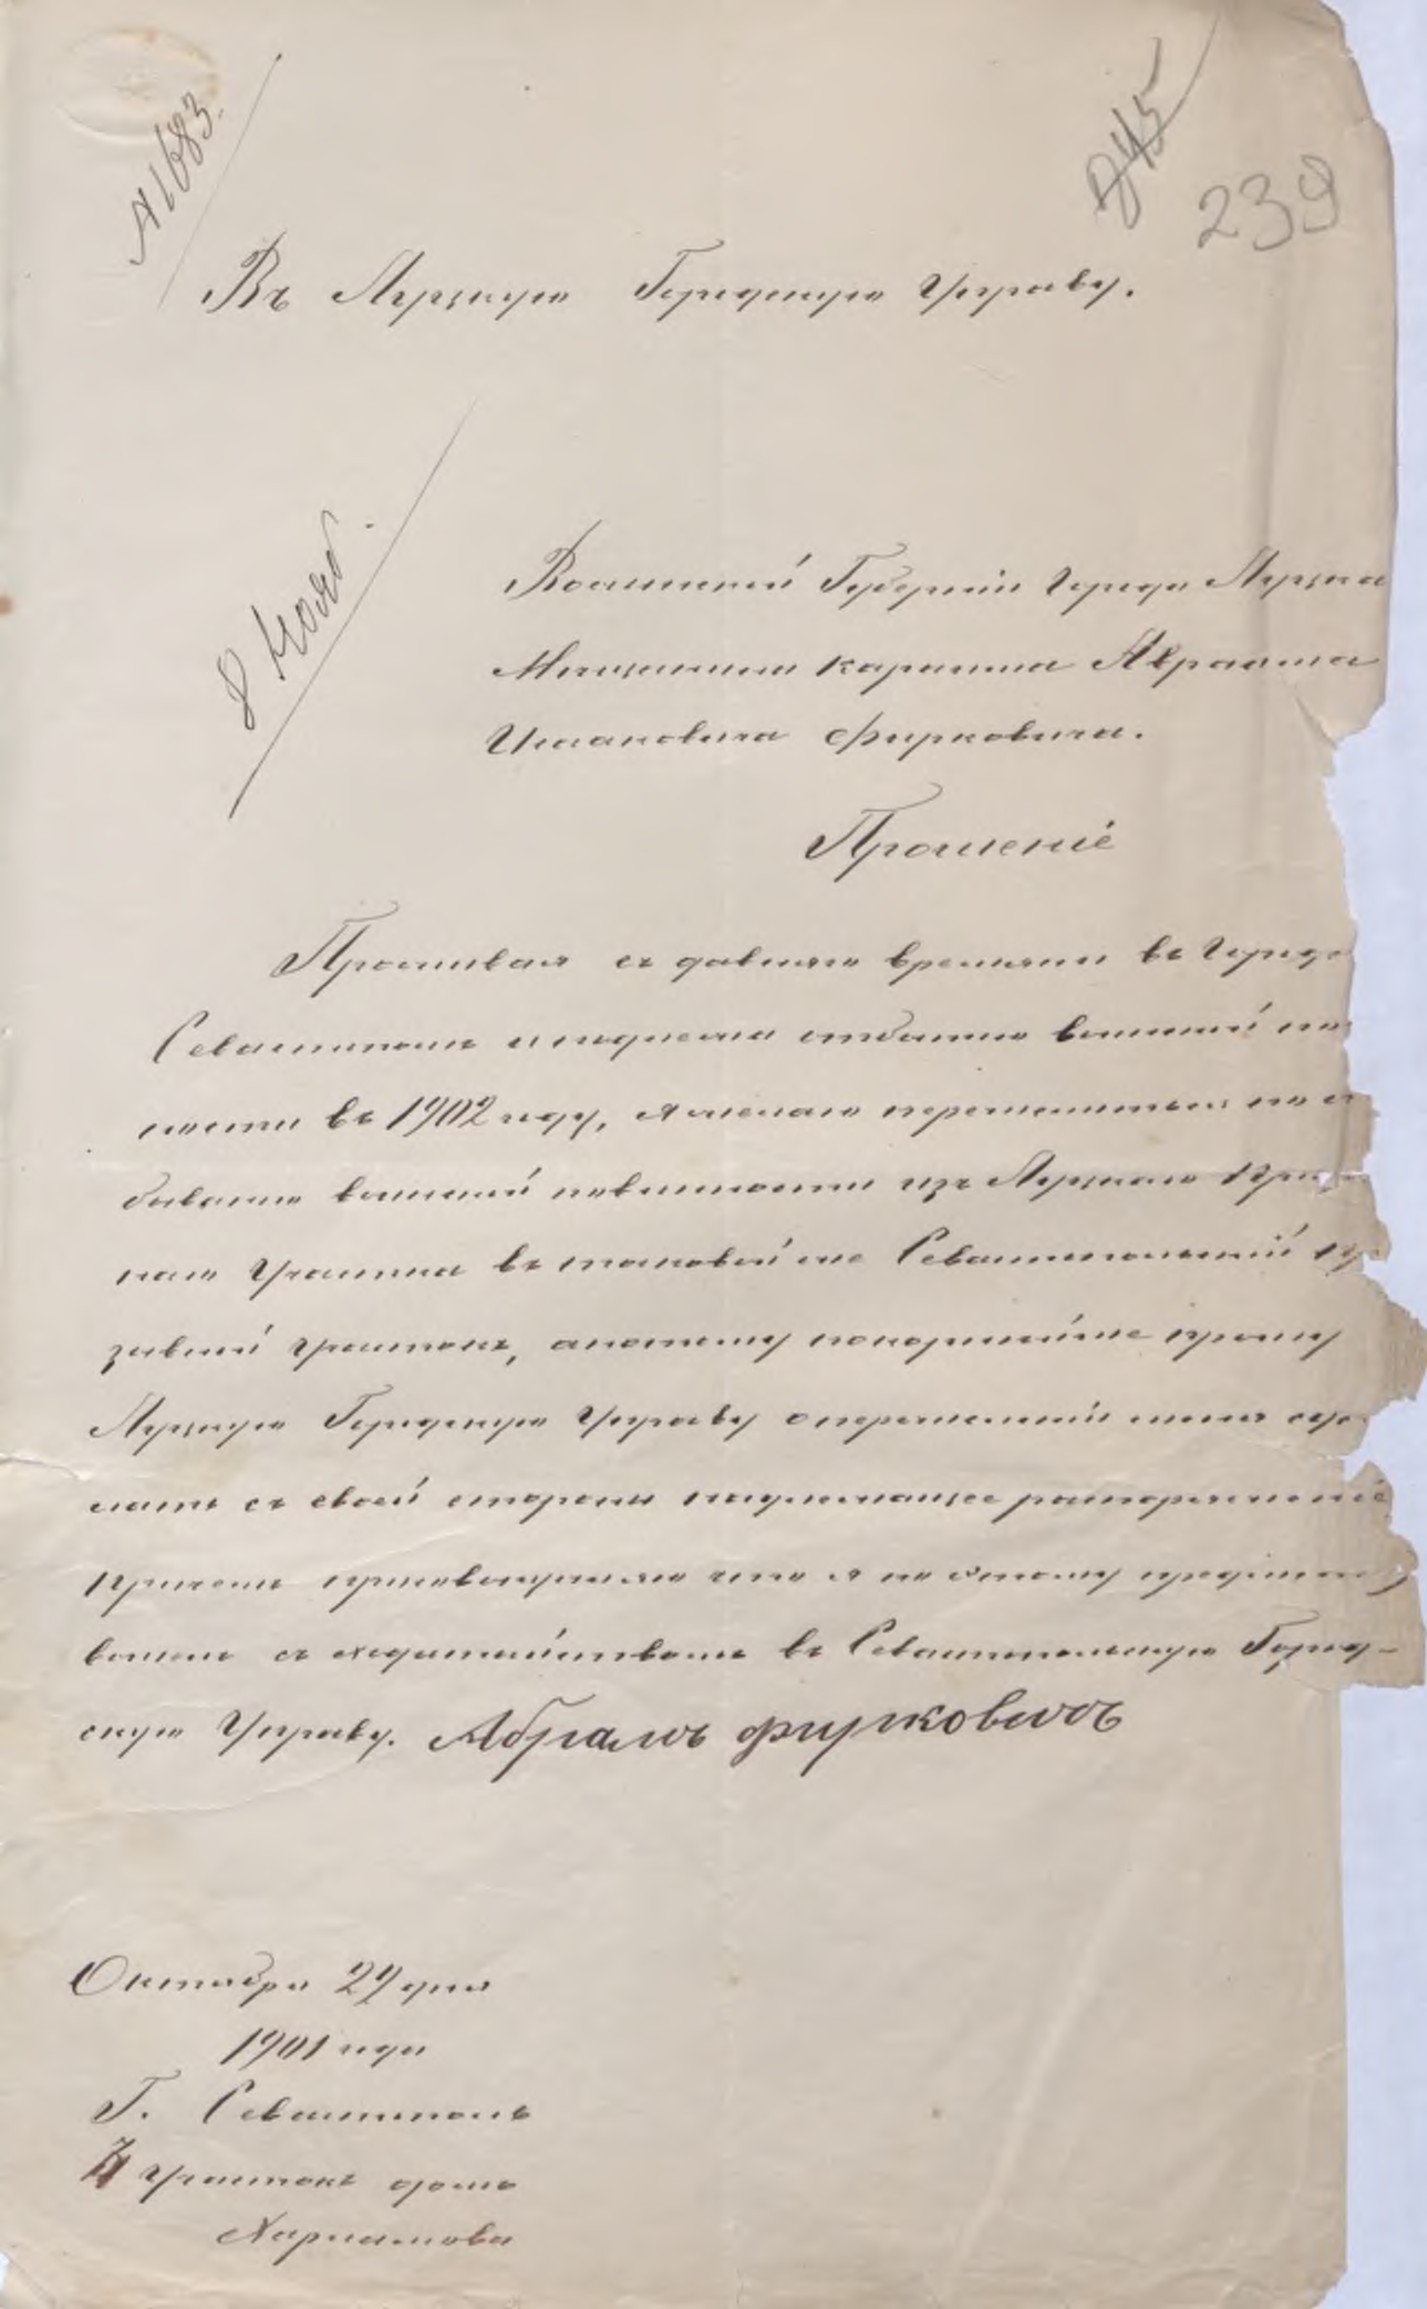 А1683.
245
239
Въ Луцкую Городскую Управу.
8 Нояб.
Волынской Губерніи Города Луцка
Мещанина караима Авраама
Исааковича Фирковича.
Прошеніе
Проживая съ давняго времени въ Городе
Севастополе и подлежа отбытию воинской по
ности въ 1902 году, я желаю перечислиться по от
быванию воинской повинности изъ Луцкаго Призыв
наго Участка въ таковой же Севастопольский При
зывной участокъ, а потому покорнейше прошу
Луцкую Городскую Управу о перечислении меня сде
лать съ своей стороны надлежащее распоряжение
Причемъ присовокупляю что я по этому предмету
вошелъ съ ходатайствомъ въ Севастопольскую Город-
скую Управу. Абрамъ Фирковичъ
Октября 29 дня
1901 года
Г. Севастополь
участокъ домъ